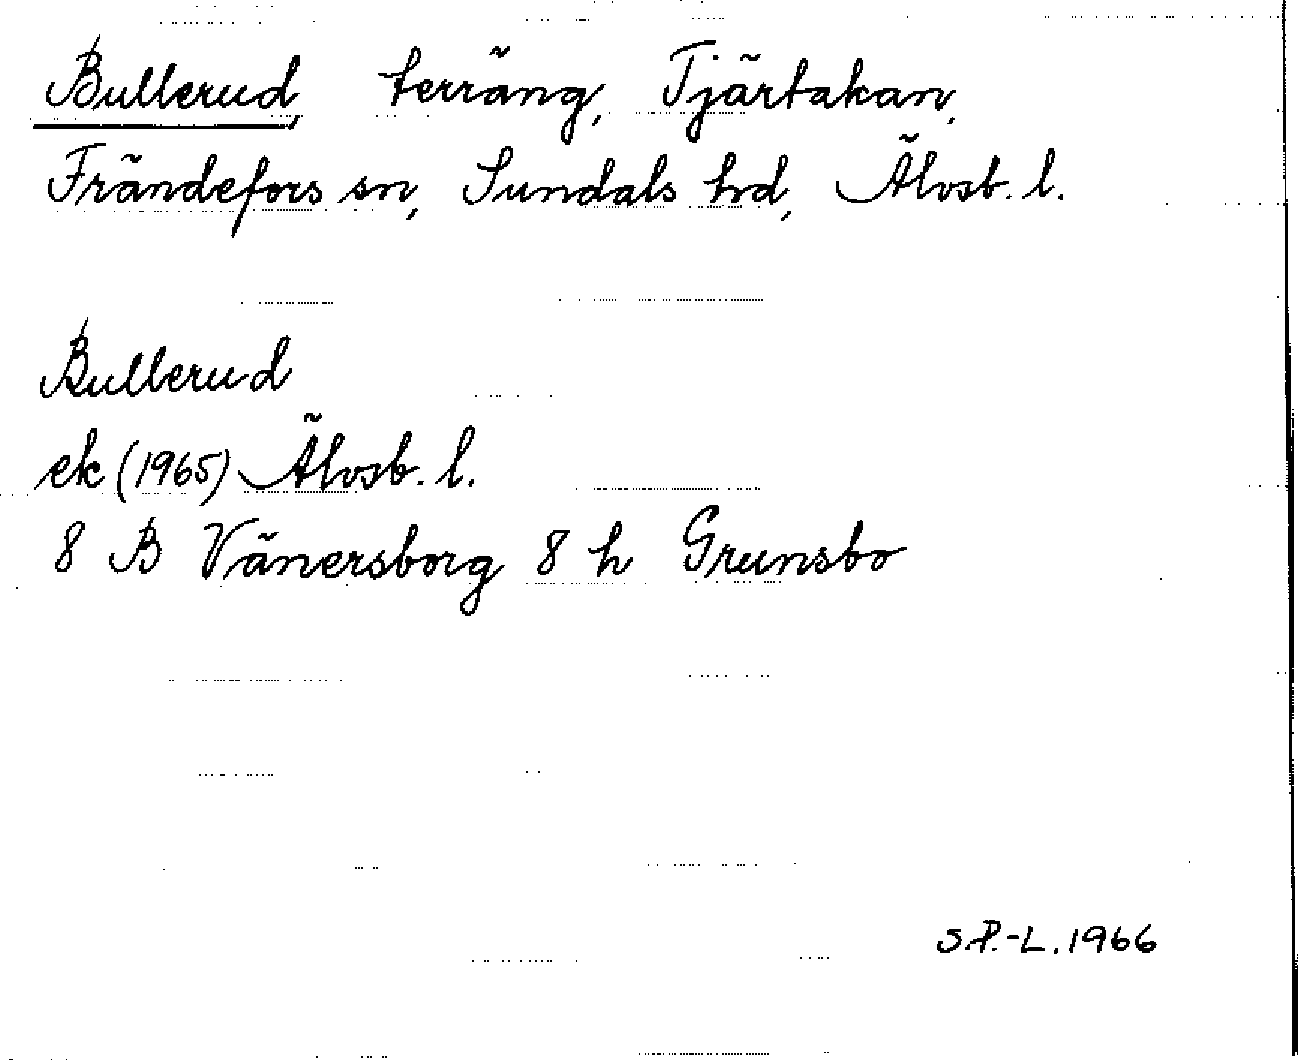 Bullerud, terräng, Tjärtakan,
Frändefors sn, Sundals hd, Älvsb. l.
Bullerud
ek (1965) Älvsb. l.
8 B Vänersborg 8 h Grunsbo
S.P.-L. 1966